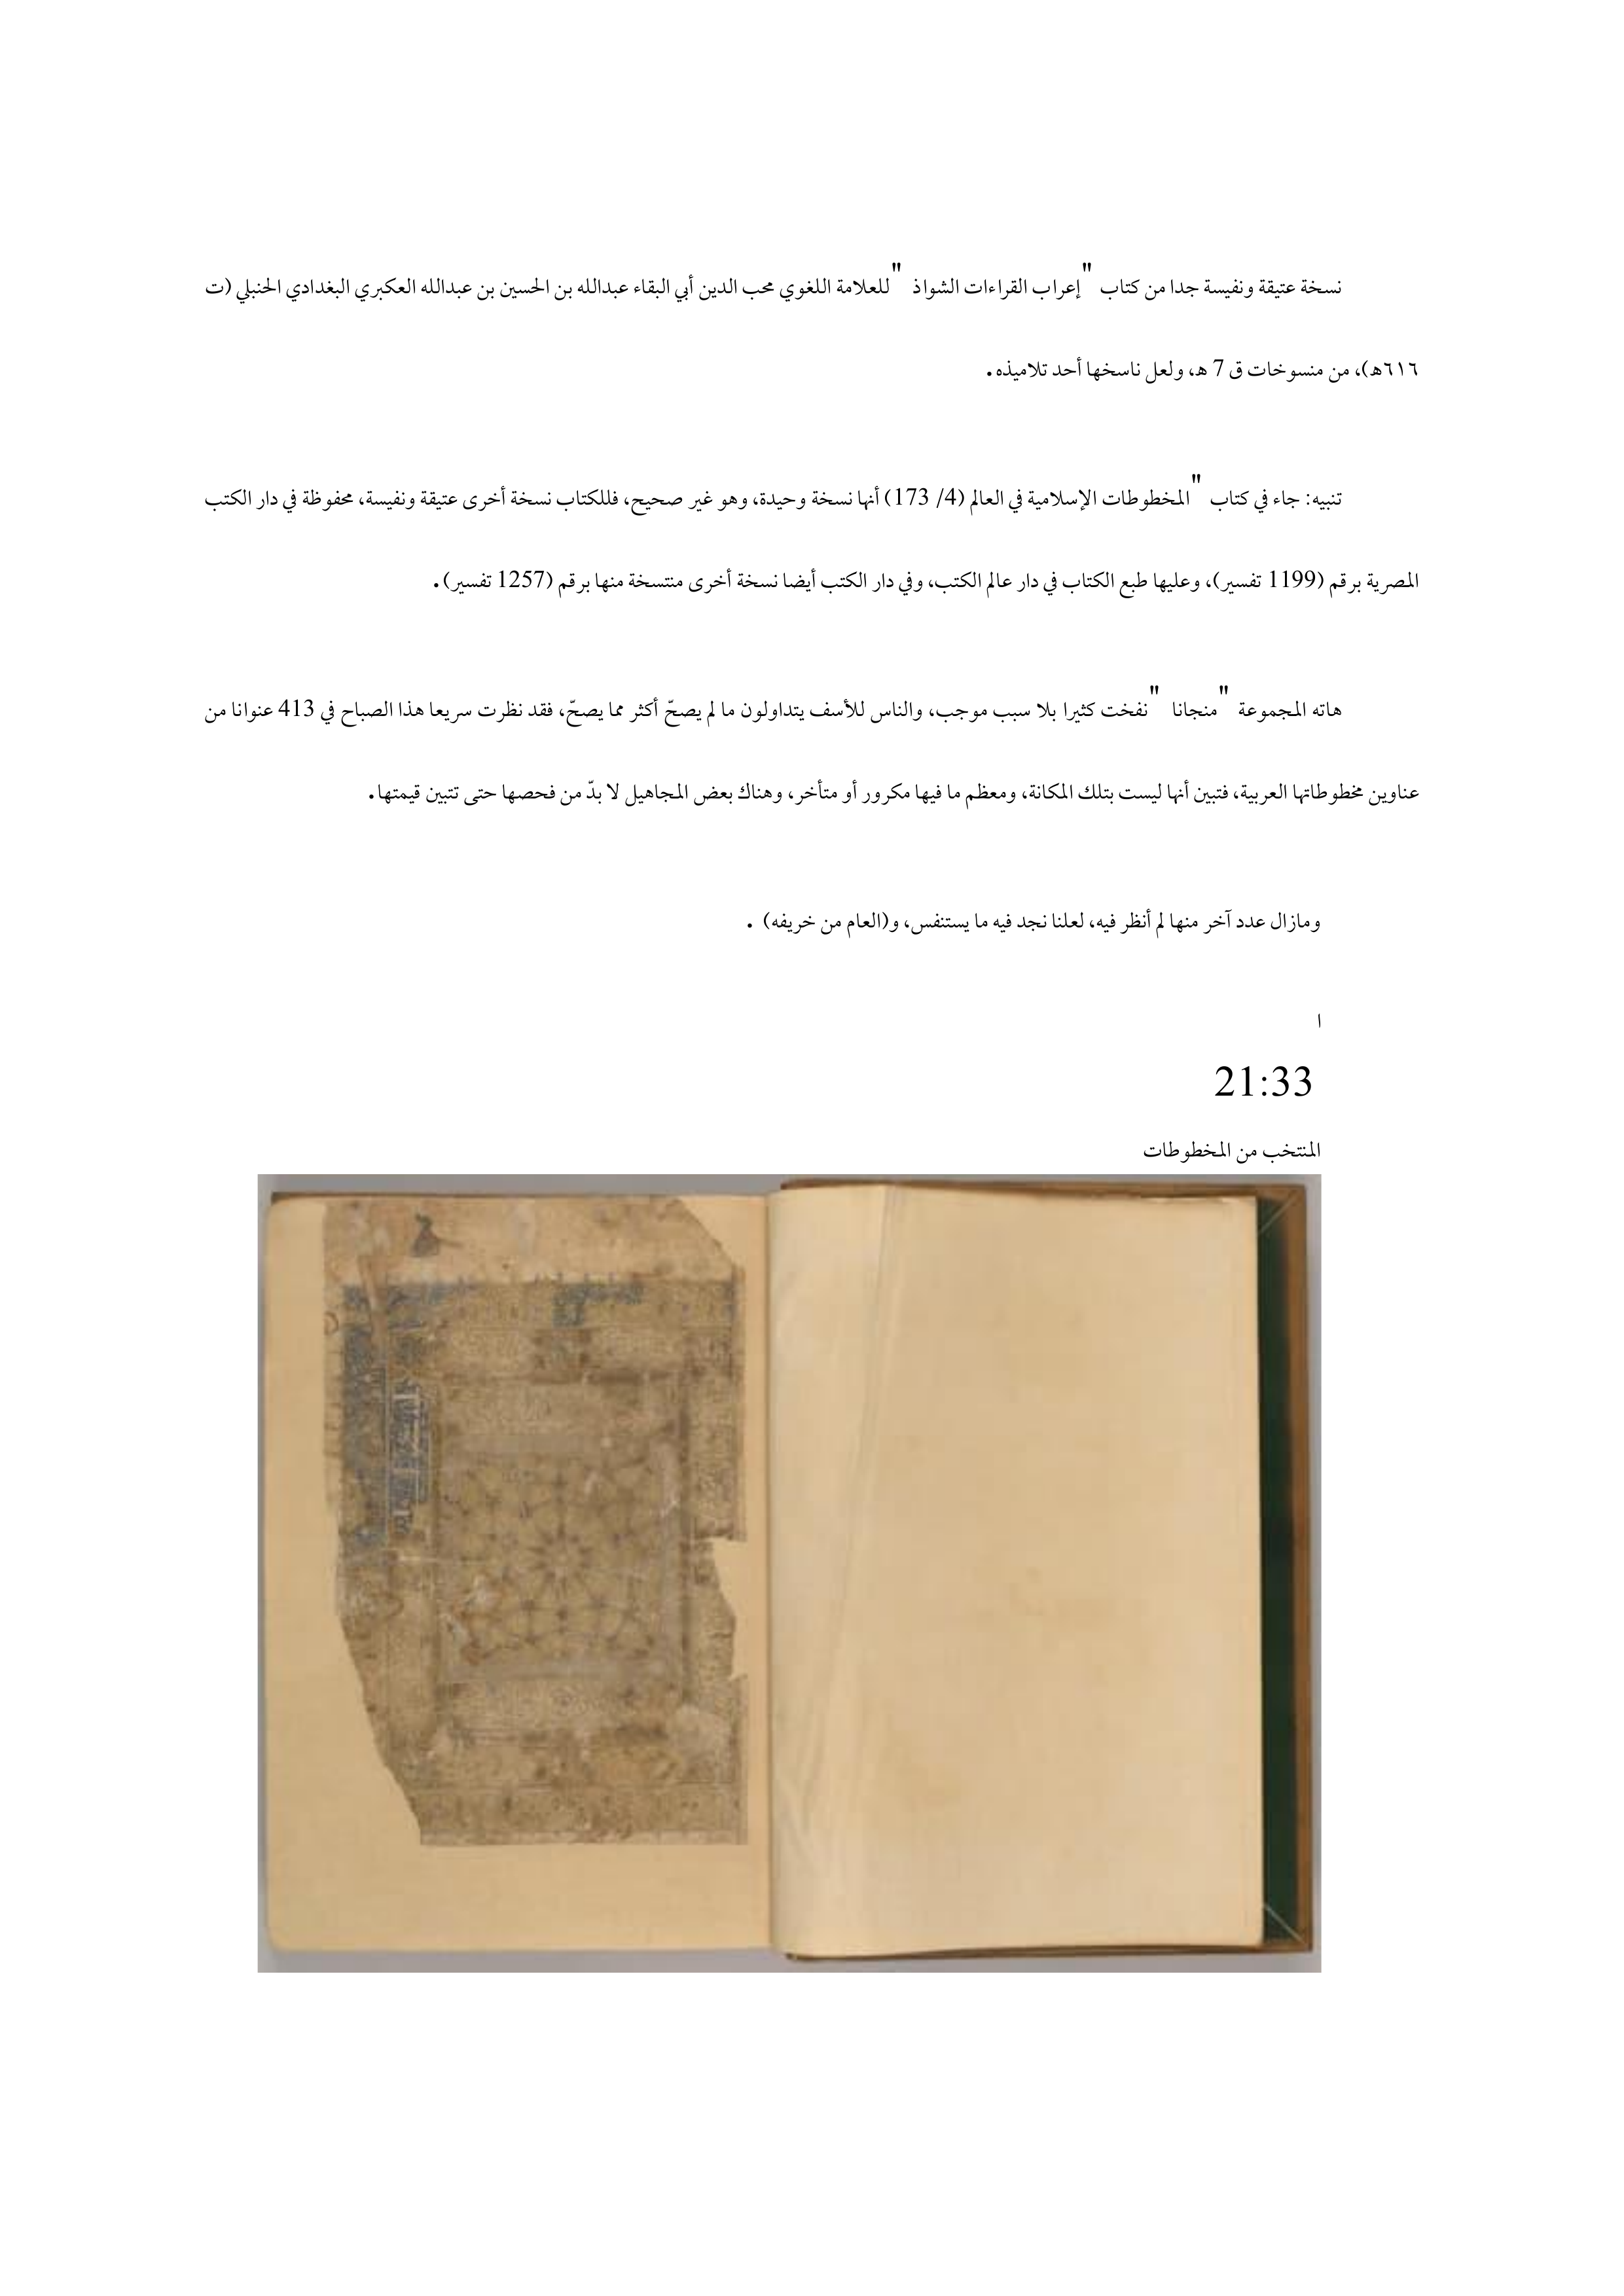 نسخة عتيقة ونفيسة جدا من كتاب "إعراب القراءات الشواذ "للعلامة اللغوي محب الدين أبي البقاء عبدالله بن الحسين بن عبدالله العكبري البغدادي الحنبلي (ت
٦١٦هـ)، من منسوخات ق 7 هـ، ولعل ناسخها أحد تلاميذه.
تنبيه: جاء في كتاب "المخطوطات الإسلامية في العالم (4/ 173) أنها نسخة وحيدة، وهو غير صحيح، فللكتاب نسخة أخرى عتيقة ونفيسة، محفوظة في دار الكتب
المصرية برقم (1199 تفسير)، وعليها طبع الكتاب في دار عالم الكتب، وفي دار الكتب أيضا نسخة أخرى منتسخة منها برقم (1257 تفسير).
هاته المجموعة "منجانا "نفخت كثيرا بلا سبب موجب، والناس للأسف يتداولون ما لم يصحّ أكثر مما يصحّ، فقد نظرت سريعا هذا الصباح في 413 عنوانا من
عناوين مخطوطاتها العربية، فتبين أنها ليست بتلك المكانة، ومعظم ما فيها مكرور أو متأخر، وهناك بعض المجاهيل لا بدّ من فحصها حتى تتبين قيمتها.
ومازال عدد آخر منها لم أنظر فيه، لعلنا نجد فيه ما يستنفس، و(العام من خريفه) .
ا
21:33
المنتخب من المخطوطات